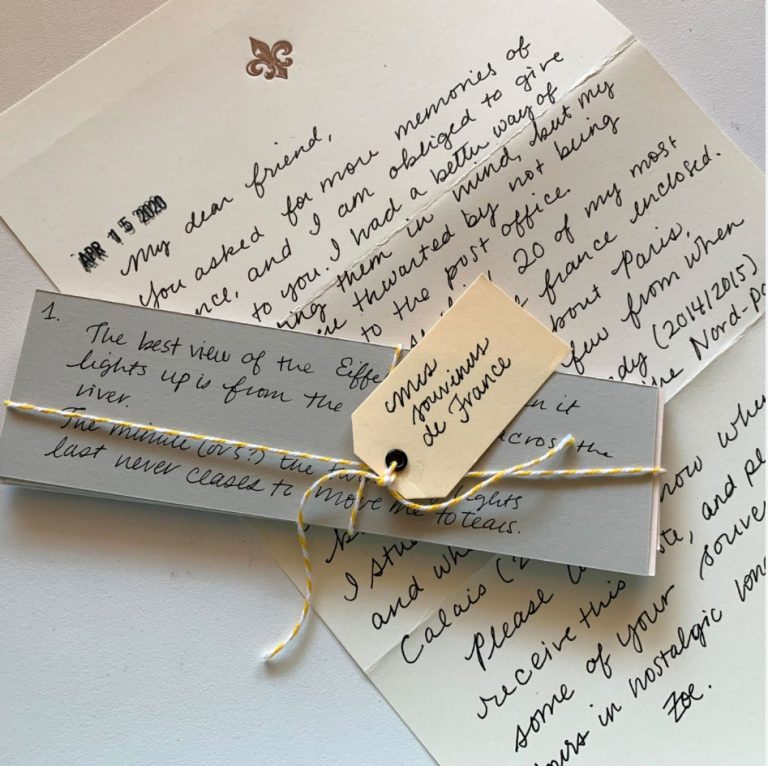 APR 15 2020
My dear friend,
You asked for more memories of
nce, and I am obliged to give
to you. I had a better way of
ing them in mind, but my
thwarted by not being
to the post office.
20 of my most
france enclosed.
bout Paris,
few from when
dy (2014/2015)
the Nord-Pa
I stu
and wh
Calais (2
Please
now whe
receive this
te, and pl
some of your souve
ours in nostalgic lon
Zoe.
1.
The best view of the Eiffe
n it
lights up is from the
across the
river.
The minute (or 5?) the
lights
last never ceases to move me to tears.
Mes
souvenirs
de France